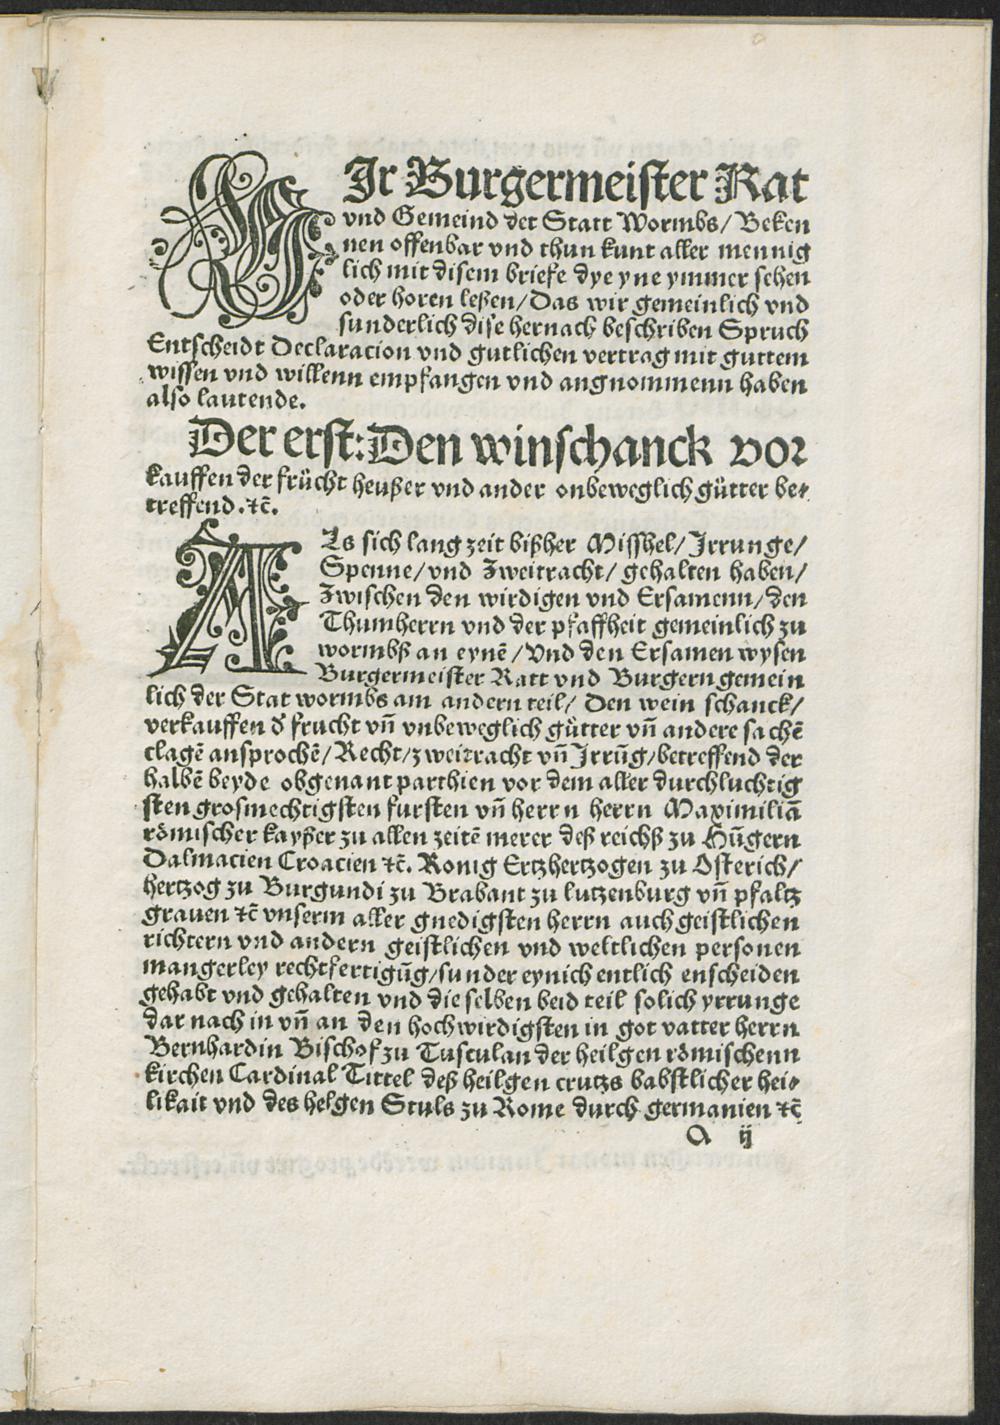 WIr Burgermeister Rat
vnd Gemeind der Statt Wormbs/ Beken
nen offenbar vnd thun kunt aller mennig
lich mit disem briefe dye yne ymmer sehen
oder horen leßen/ Das wir gemeinlich vnd
sunderlich dise hernach beschriben Spruch
Entscheidt Declaracion vnd gutlichen vertrag mit guttem
wissen vnd willenn empfangen vnd angnommenn haben
also lautende.
Der erst: Den winschanck vor
kauffen der frücht heußer vnd ander onbeweglich gütter be⸗
treffend. ⁊c̄.
ALs sich lang zeit bißher Misshel/ Jrrunge/
Spenne/ vnd Zweitracht/ gehalten haben/
Zwischen den wirdigen vnd Ersamenn/ den
Thumherrn vnd der pfaffheit gemeinlich zu
wormbß an eynē / Vnd den Ersamen wysen
Burgermeister Ratt vnd Burgern gemein
lich der Stat wormbs am andern teil/ Den wein schanck/
verkauffen d̕ frucht vn̄ vnbeweglich gütter vn̄ andere sachē
clagē ansprochē/ Recht/ zweitracht vn̄ Jrrūg/ betreffend der
halbē beyde obgenant parthien vor dem aller durchluchtig
sten grosmechtigsten fursten vn̄ herrn herrn Maximiliā
römischer kayßer zu allen zeitē merer deß reichß zu Hūgern
Dalmacien Croacien ⁊c̄. Konig Ertzhertzogen zu Osterich/
hertzog zu Burgundi zu Brabant zu lutzenburg vn̄ pfaltz
grauen ⁊c̄ vnserm aller gnedigsten herrn auch geistlichen
richtern vnd andern geistlichen vnd weltlichen personen
mangerley rechtfertigūg/ sunder eynich entlich enscheiden
gehabt vnd gehalten vnd die selben beid teil solich yrrunge
dar nach in vn̄ an den hochwirdigsten in got vatter herrn
Bernhardin Bischof zu Tusculan der heilgen römischenn
kirchen Cardinal Tittel deß heilgen crutzs babstlicher hei⸗
likait vnd des helgen Stuls zu Rome durch germanien ⁊c̄
a ij